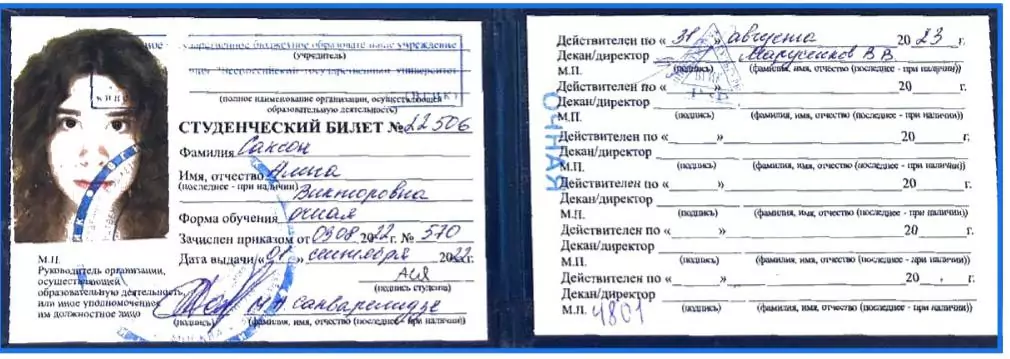 государственное бюджетное образовательное учреждение
(учредитель)
"Всероссийский государственный университет
(ВГИК)
(полное наименование организации, осуществляющей
образовательную деятельность)
СТУДЕНЧЕСКИЙ БИЛЕТ № 22506
Фамилия Сансон
Имя, отчество Алина
(последнее - при наличии)
Викторовна
Форма обучения очная
Зачислен приказом от 09 08 2022г. № 570
Дата выдачи « 01 » сентября 2022г.
(подпись студента)
М.П.
Руководитель организации,
осуществляющей
образовательную деятельность,
или иное уполномоченное
им должностное лицо
М.А. Санварелидзе
(подпись) (фамилия, имя, отчество (последнее - при наличии)
МОСКВА
ОЧНАЯ
Действителен по « 31 » августа 20 23 г.
Декан/директор Марусенков В.В.
М.П. (подпись) (фамилия, имя, отчество (последнее - при наличии))
ВГИК
Действителен по « » 20 г.
Декан/директор
М.П. (подпись) (фамилия, имя, отчество (последнее - при наличии))
Действителен по « » 20 г.
Декан/директор
М.П. (подпись) (фамилия, имя, отчество (последнее - при наличии))
Действителен по « » 20 г.
Декан/директор
М.П. (подпись) (фамилия, имя, отчество (последнее - при наличии))
Декан/директор
М.П. (подпись) (фамилия, имя, отчество (последнее - при наличии))
Действителен по « » 20 г.
Декан/директор
М.П. 4801 (подпись) (фамилия, имя, отчество (последнее - при наличии))